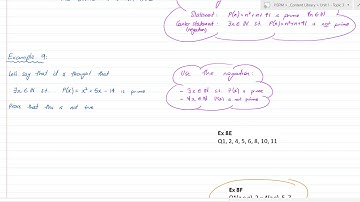 Statement: P(n) = n² + n + 41 is prime ∀n ∈ ℕ
Counter statement: ∃n ∈ ℕ s.t. P(n) = n² + n + 41 is not prime
(negation)
Example 9:
Let's say that it is thought that
∃x ∈ ℕ s.t. P(x) = x² + 5x - 14 is prime
Prove that this is not true
Use the negation:
- ∃x ∈ ℕ s.t. P(x) is prime
- ∀x ∈ ℕ P(x) is not prime
Ex 8E
Q1, 2, 4, 5, 6, 8, 10, 11
Ex 8F